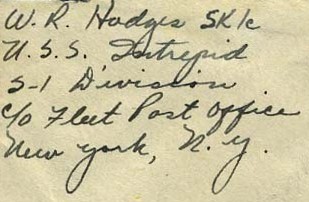 W. R. Hodges SK1c
U.S.S. Intrepid
S-1 Division
c/o Fleet Post Office
New York, N.Y.